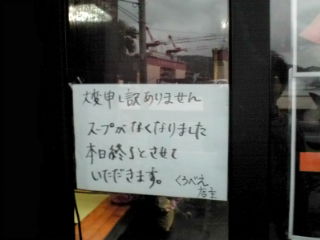 大変申し訳ありません
スープがなくなりました
本日終りとさせて
いただきます。
くろべえ
店主